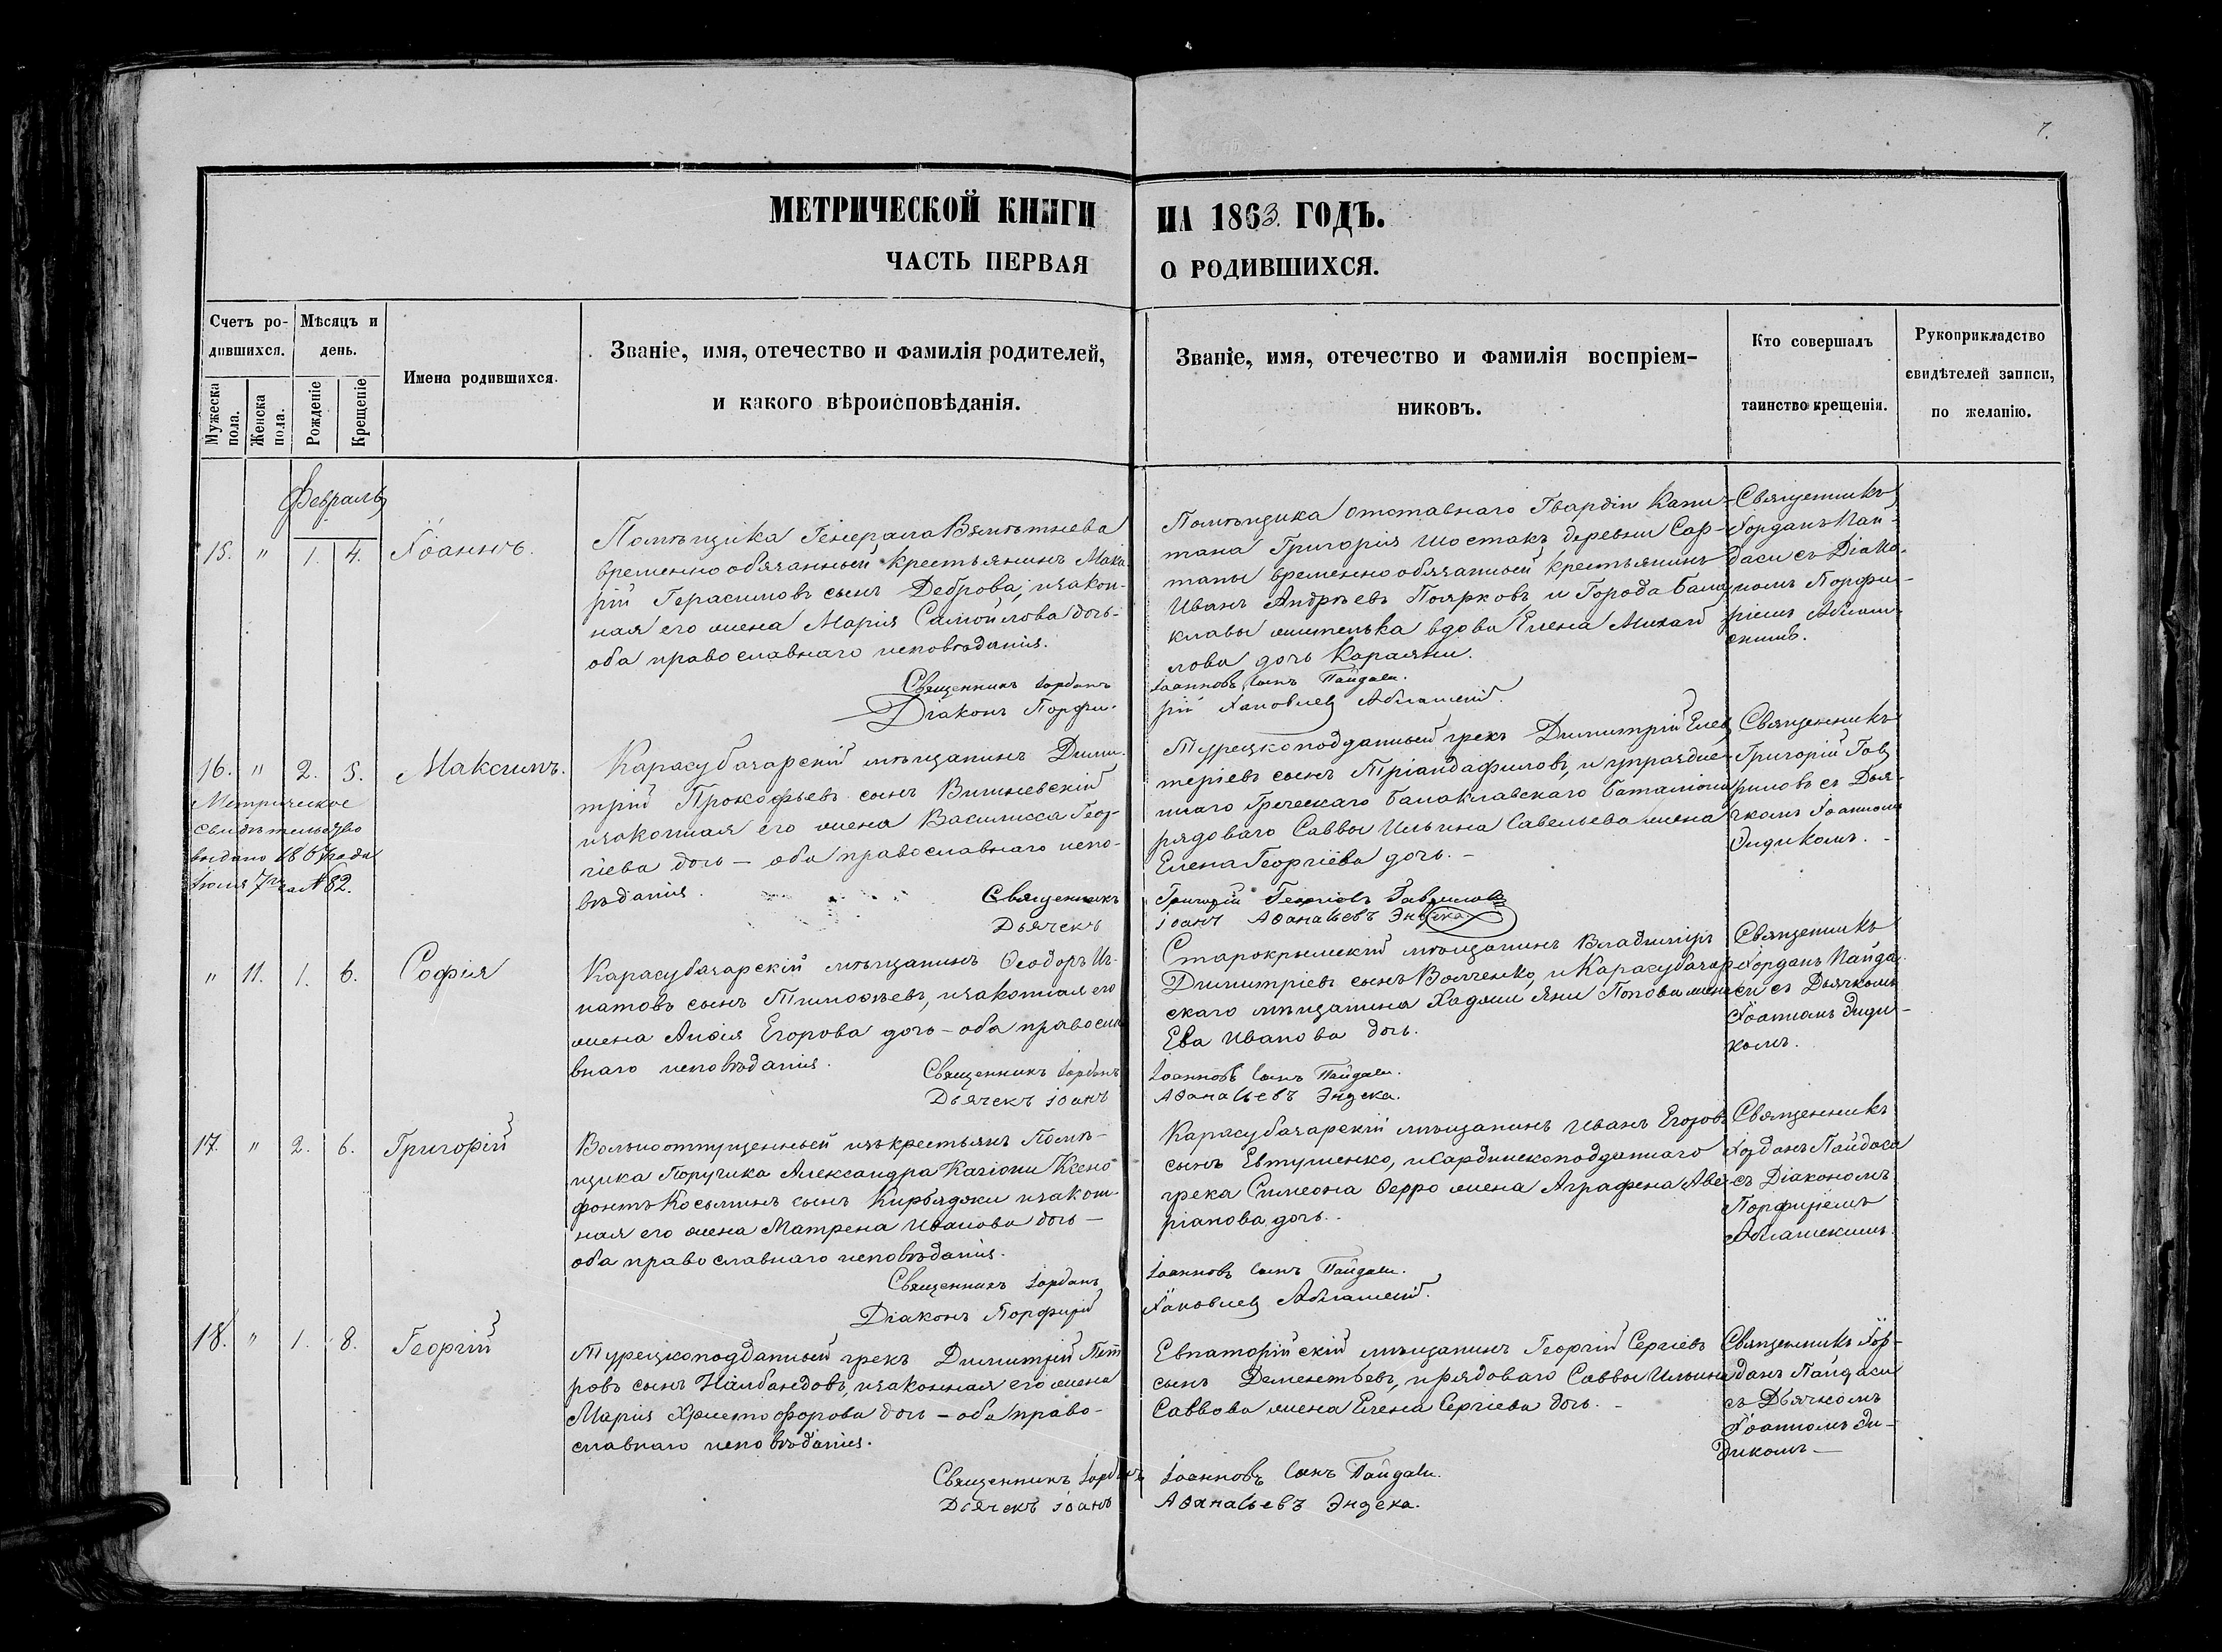 7.
МЕТРИЧЕСКОЙ КНИГИ НА 1863. ГОДЪ.
ЧАСТЬ ПЕРВАЯ О РОДИВШИХСЯ.
Счетъ ро-
дившихся.
Мужеска пола.
Женска пола.
Мѣсяцъ и
день.
Рожденіе
Крещеніе
Имена родившихся.
Званіе, имя, отечество и фамилія родителей,
и какого вѣроисповѣданія.
Званіе, имя, отечество и фамилія воспріем-
никовъ.
Кто совершалъ
таинство крещенія.
Рукоприкладство
свидѣтелей записи,
по желанію.
Февраль
15. " 1. 4. Іоаннъ.
Помѣщика Генерала
временно обязанный крестьянинъ Мака
рій Герасимовъ сынъ Деброва, изакон-
ная его жена Марія Самойлова дочь-
оба православнаго исповѣданія.
Священникъ Іорданъ
Діаконъ Порфи-
Помѣщика отставнаго Гвардіи Капи-
тана Григорія Шостакъ деревни Сар-
таны временно обязанный крестьянинъ
Иванъ Андрѣевъ Поярковъ и Города Бала
клавы жителька вдова Елена Михай
лова дочь Караяни.
Іоанновъ сынъ Пайдаси.
рій Іаковлев Аблашескій.
Священникъ
Іорданъ Пай-
даси съ Діако-
номъ Порфи-
ріемъ Аблаше-
скимъ.
16. " 2. 5. Максимъ.
Метрическое
свидѣтельство
выдано 1867 года
Іюля 7го за № 82.
Карасубазарскій мѣщанинъ Дими-
трій Прокофьевъ сынъ Вишневскій
изаконная его жена Василисса Геор-
гіева дочь — оба православнаго испо-
вѣданія.
Священникъ
Дьячекъ
Турецкоподданный грекъ Димитрій Елев
теріевъ сынъ Тріандафиловъ, и упраздне-
ннаго Греческаго Балаклавскаго баталіона
рядоваго Саввы Ильина Савельева жена
Елена Георгіева дочь. -
Григорій Георгіовъ Гавриловъ
іоанъ Аѳанасьевъ Эндека
Священникъ
Григорій Гав
риловъ съ Дья-
чкомъ Іоанномъ
Эндикомъ. -
" 11. 1. 6. Софія
Карасубазарскій мѣщанинъ Ѳеодоръ Иг-
натовъ сынъ Тимоѳѣевъ, изаконная его
жена Анѳія Егорова дочь - оба правосла
внаго исповѣданія.
Священникъ Іорданъ
Дьячекъ іоанъ
Старокрымскій мѣщанинъ Владимиръ
Димитріевъ сынъ Волченко, и Карасубазар
скаго мѣщанина Хаджи Яни Попова жена
Ева Иванова дочь.
Іоанновъ сынъ Пайдаси.
Аѳанасьевъ Эндека.
Священникъ
Іорданъ Пайда
си съ Дьячкомъ
Іоанномъ Энди-
комъ.
17. " 2. 6. Григорій
Вольноотпущенный изъ крестьянъ Помѣ-
щика Поручика Александра Качіони Ксено
фонтъ Косьминъ сынъ Кирбяджи изакон-
ная его жена Матрена Иванова дочь —
оба православнаго исповѣданія.
Священникъ Іорданъ
Діаконъ Порфирій
Карасубазарскій мѣщанинъ Иванъ Егоровъ
сынъ Евтушенко, и Сардинскоподданнаго
грека Симеона Ѳерро жена Аграфена Аве
ріанова дочь. -
Іоанновъ сынъ Пайдаси.
Іаковлев Аблашескій.
Священникъ
Іорданъ Пайдаси
съ Діакономъ
Порфиріемъ
Аблашескимъ.
18. " 1. 8. Георгій
Турецкоподданный грекъ Димитрій Пет
ровъ сынъ Налбандовъ, изаконная его жена
Марія Христофорова дочь - оба право-
славнаго исповѣданія.
Священникъ Іорданъ
Дьячекъ іоанъ
Евпаторійскій мѣщанинъ Георгій Сергіевъ
сынъ Дементьевъ, и рядоваго Саввы Ильина
Саввова жена Елена Сергіева дочь. -
Іоанновъ сынъ Пайдаси.
Аѳанасьевъ Эндека.
Священникъ Іор-
данъ Пайдаси
съ Дьячкомъ
Іоанномъ Эн-
дикомъ —